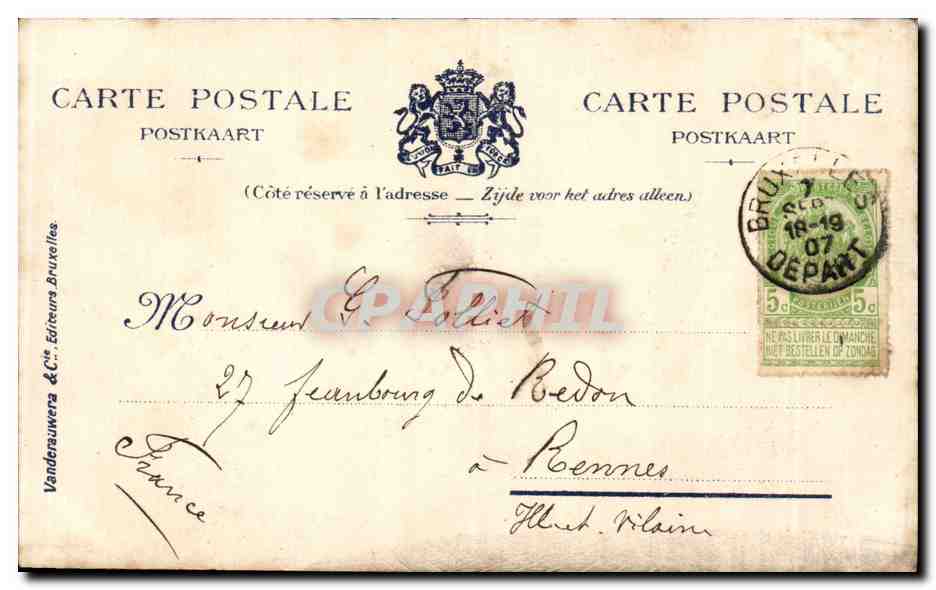 CARTE POSTALE
POSTKAART
L'UNION FAIT LA FORCE
CARTE POSTALE
POSTKAART
(Côté réservé à l'adresse — Zijde voor het adres alleen)
BRUXELLES
7
SEP
18-19
07
DEPART
5c POSTERIJEN 5c
NE PAS LIVRER LE DIMANCHE
NIET BESTELLEN OP ZONDAG
CPARHIL
Monsieur G. Folliet
27 feaubourg de Redon
à Rennes
Ille et Vilaine
France
Vanderauwera & Cie, Editeurs, Bruxelles.